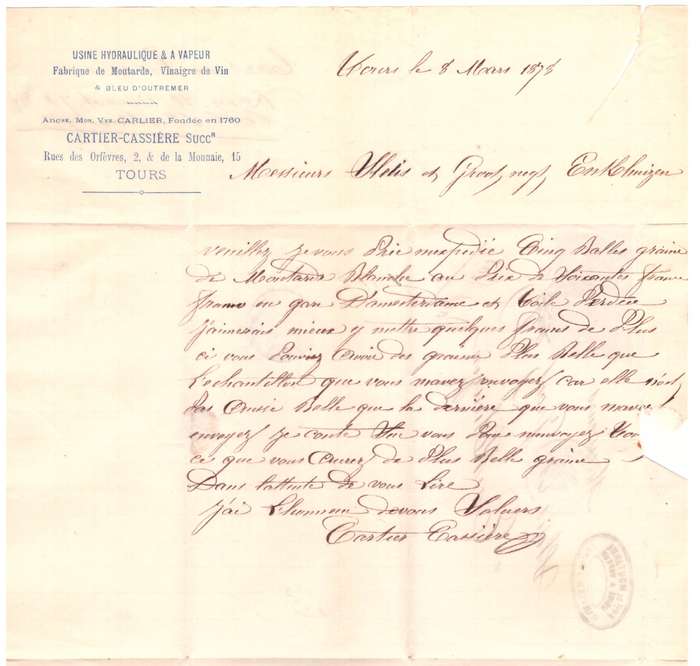 USINE HYDRAULIQUE & A VAPEUR
Fabrique de Moutarde, Vinaigre de Vin
& BLEU D'OUTREMER
Ancne. Mon. Vve. CARLIER, Fondée en 1760
CARTIER-CASSIÈRE SUCCR
Rues des Orfèvres, 2, & de la Monnaie, 15
TOURS
Tours le 8 Mars 1878
Messieurs Sluis et Groot, negts Enkhuizen
veuillez je vous Prie mexpediée Cinq Balles graine
de Moutarde Blanche au Prix de Soixantes francs
franco en gare D'amsterdame et Toile Perdue
j'aimerais mieux y mettre quelques francs de Plus
ci vous Pouviez avoir des graines Plus Belle que
Lechantillon que vous mavez envoyez car elle n'est
Pas aussie Belle que la dernière que vous mavez
envoyez je conte que vous Pour menvoyez
ce que vous aurez de Plus Belle graine
Dans l'attente de vous Lire
j'ai L'honneur de vous Saluers
Cartier Cassière